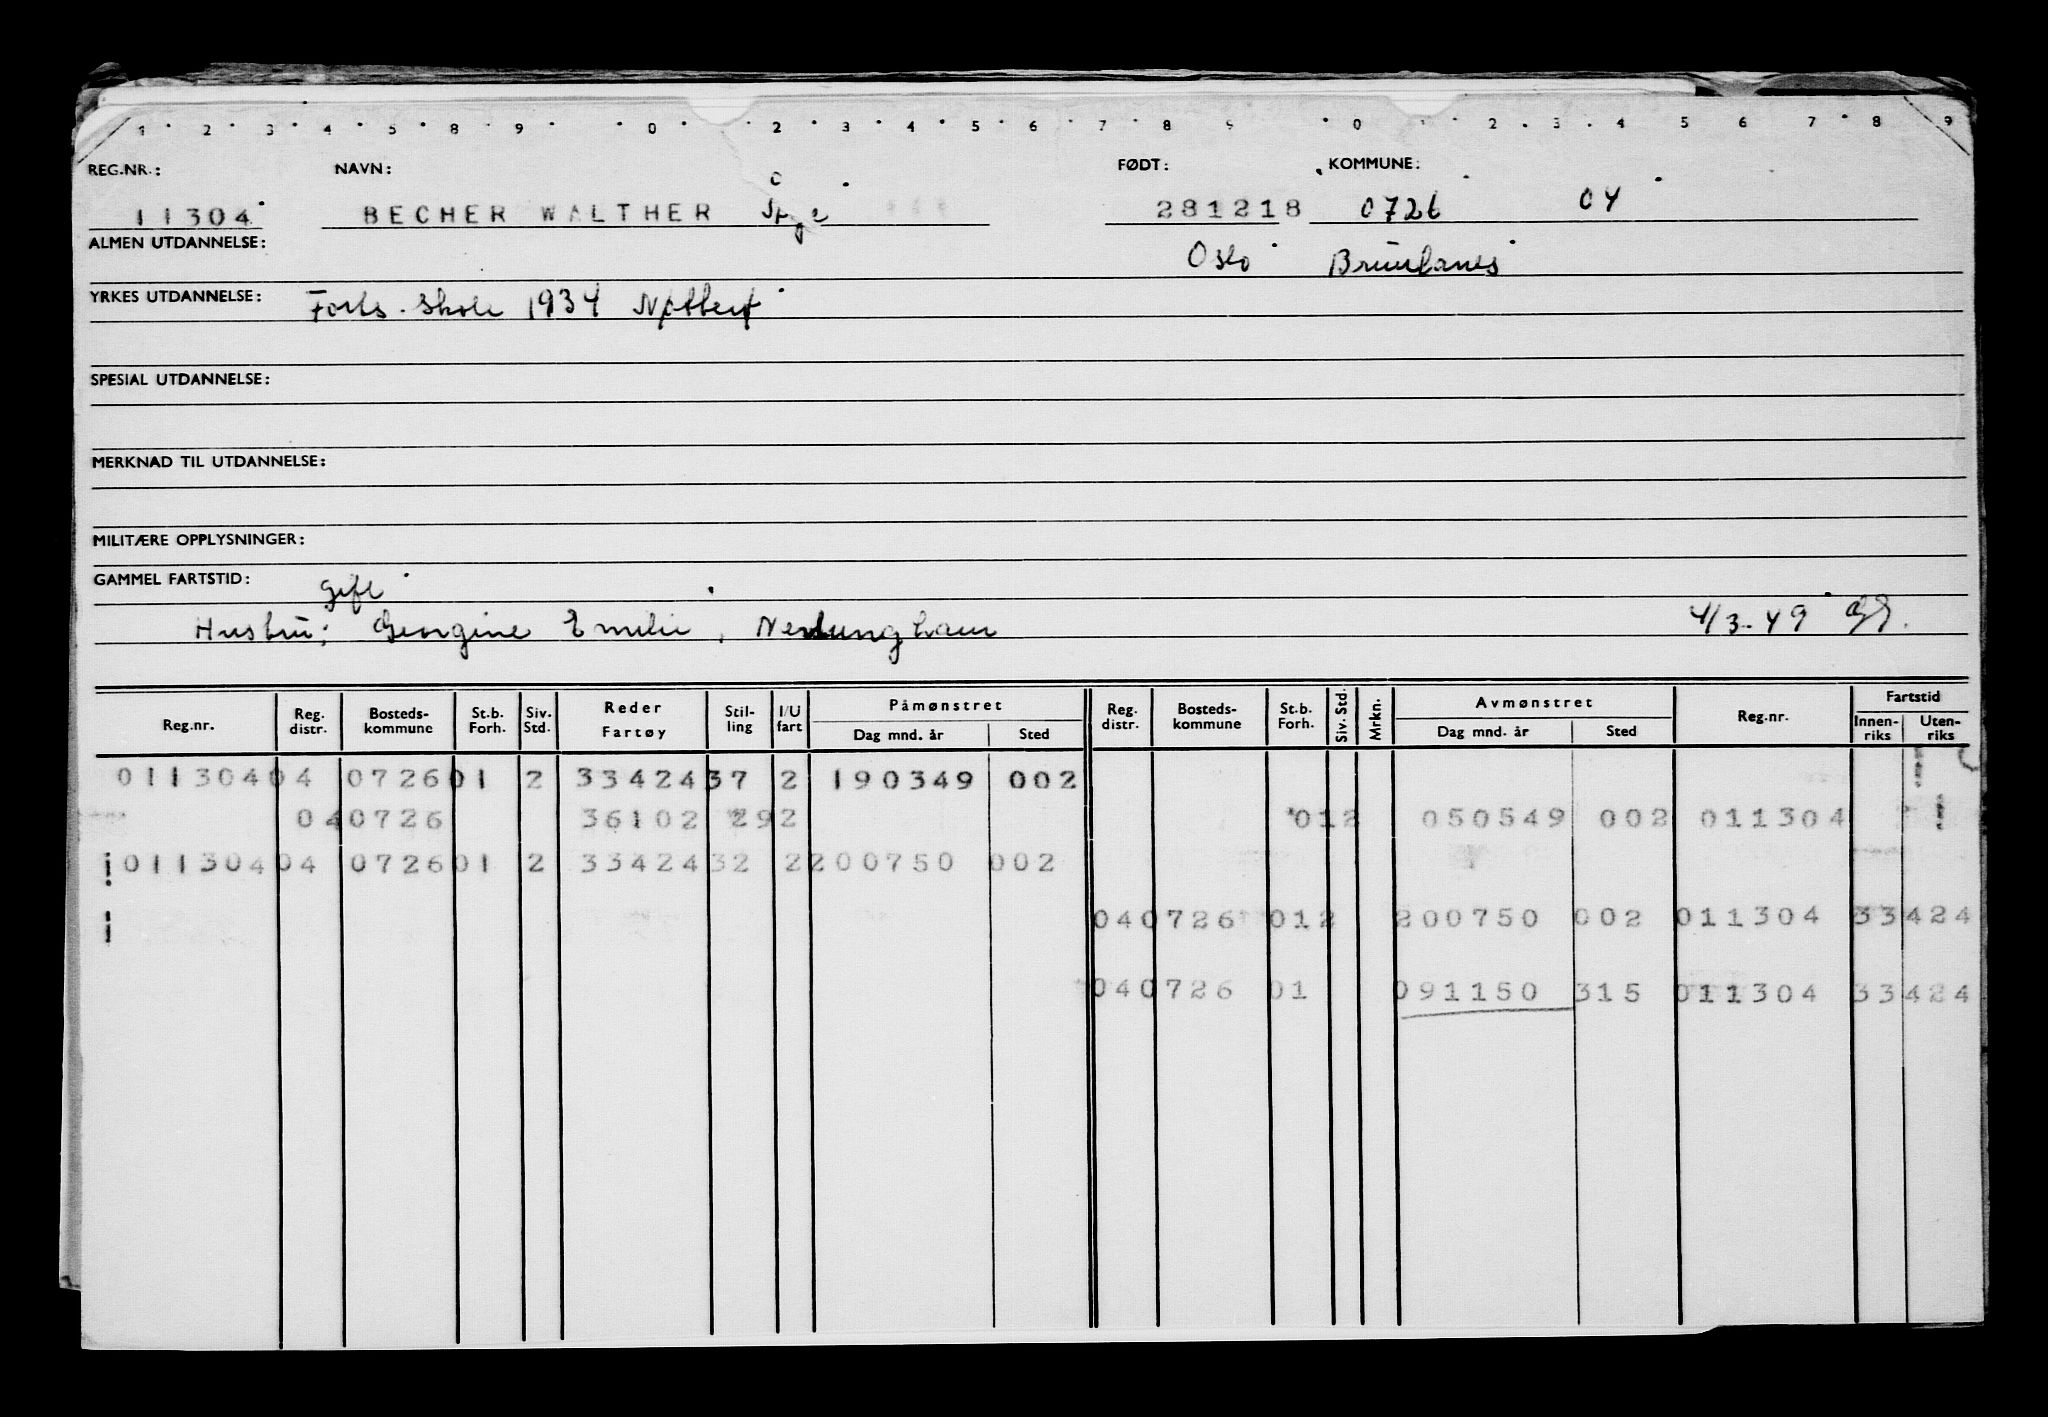 1 2 3 4 5 8 9 0 2 3 4 5 6 7 8 9 0 2 3 4 5 6 7 8 9
REG.NR.: NAVN: FØDT: KOMMUNE:
11304 BECHER WALTHER 281218 0726 04
ALMEN UTDANNELSE: Oslo Brunlanes
YRKES UTDANNELSE: Forts. skole 1934
SPESIAL UTDANNELSE:
MERKNAD TIL UTDANNELSE:
MILITÆRE OPPLYSNINGER:
GAMMEL FARTSTID: gift
Hustru: Georgine Emilie, Nevlunghavn 4/3-49
Reg.nr. Reg. distr. Bosteds-kommune St.b. Forh. Siv. Std. Reder Fartøy Stil-ling I/U fart Påmønstret Dag mnd. år Sted Reg. distr. Bosteds-kommune St.b. Forh. Siv. Std. Mrkn. Avmønstret Dag mnd. år Sted Reg.nr. Fartstid Innen-riks Uten-riks
011304 04 0726 01 2 33424 37 2 190349 002
04 0726 36102 29 2 01 2 050549 002 011304
011304 04 0726 01 2 33424 32 2 200750 002
04 0726 01 2 200750 002 011304 33424
04 0726 01 091150 315 011304 33424